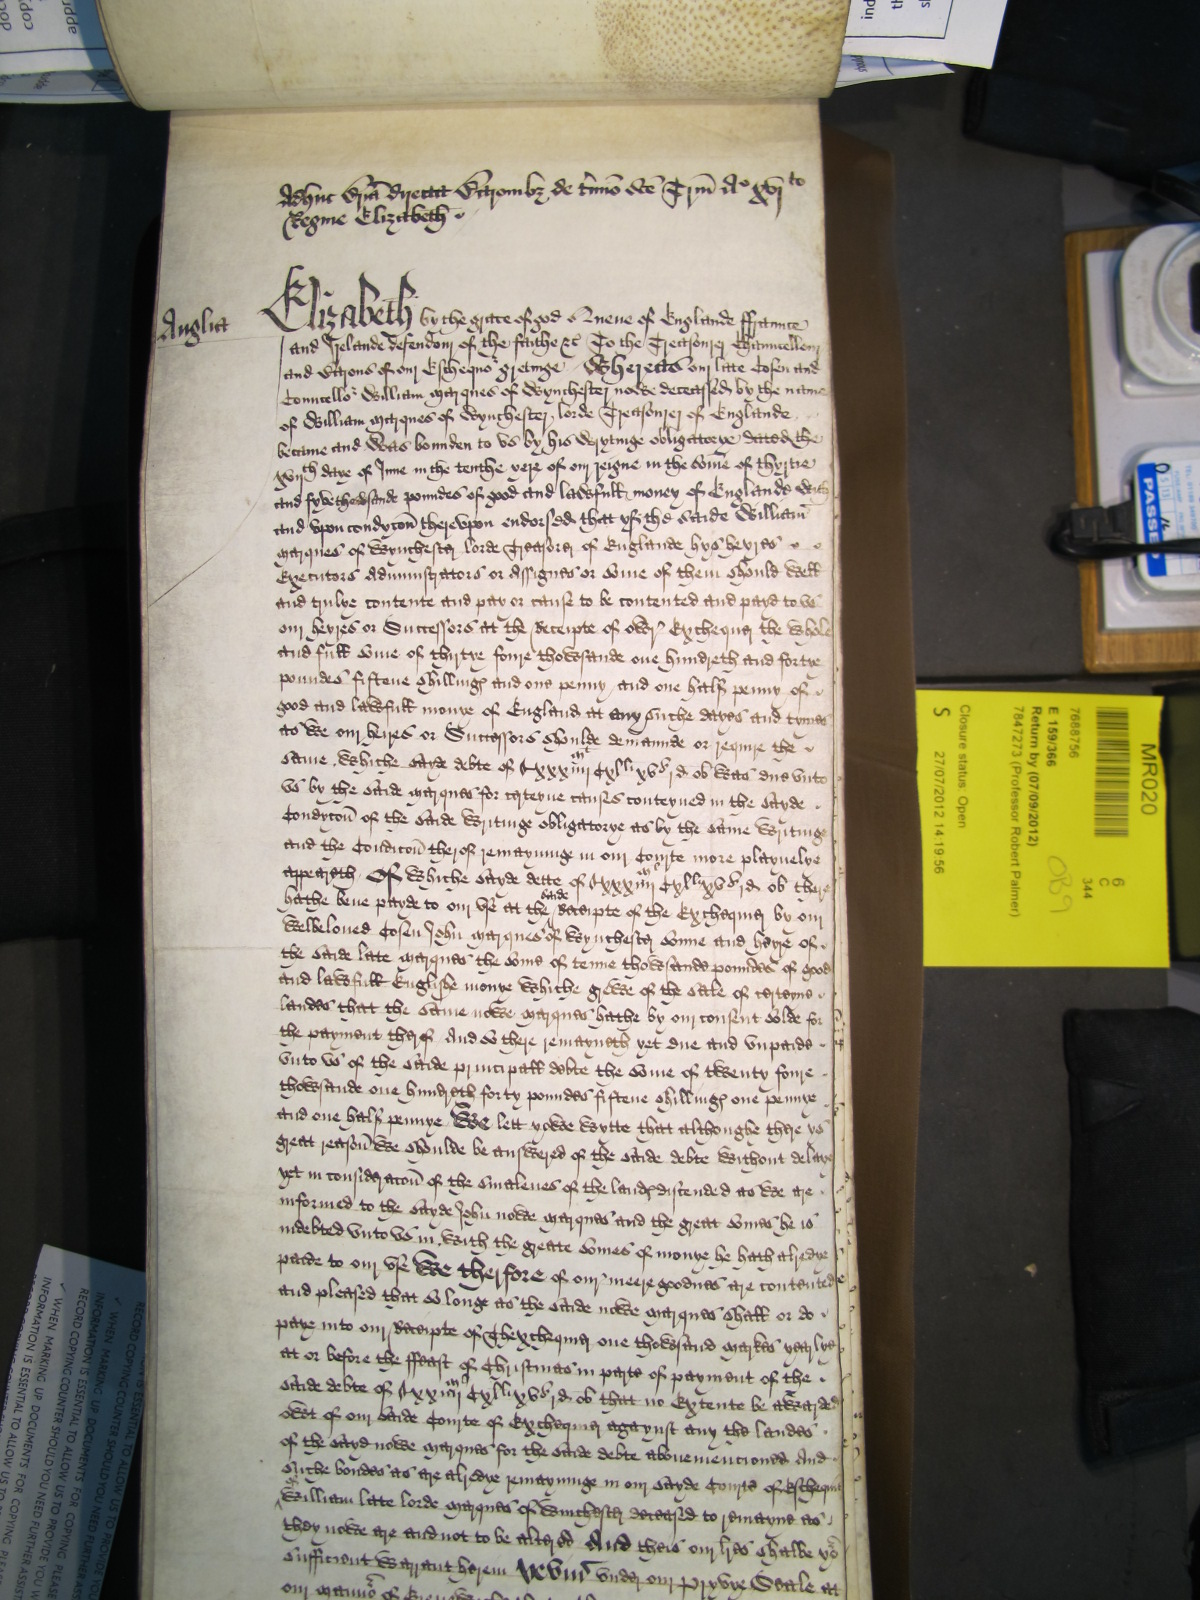 Adhuc Bria direct Baronibz de tmino Sce Trin Ao xvito
Regine Elizabeth
Anglia
Elizabeth by the grace of god Quene of Englande ffraunce
and Irelande defendour of the faithe &c To the Treasourer Chauncellour
and Barons of our Eschequor gretinge Whereas our late Cosen and
Councellor William Marques of Wynchester nowe deceassed by the name
of William Marques of Wynchester lorde Treasourer of Englande
became and was bounden to vs by his wrytinge obligatorye dated the
daye of June in the tenthe yere of our reigne in the some of thyrtie
and fyve thowsande poundes of good and lawfull money of Englande with
and vpon condycon therevpon endorsed that yf the saide William
Marques of Wynchester lorde Treasorer of Englande hys heyres
Executors Administrators or Assignes or some of them should well
and trulye contente and pay or cause to be contented and payd to vs
our heyres or Successors at the Receipte of owr Exchequer the whole
and full some of thirtye foure thowsande one hundreth and fortye
poundes fiftene shillings and one penny and one half penny of
good and lawfull monye of England at any suche dayes and tymes
as we our heyres or Successors shoulde demaunde or require the
same, Whiche sayde debte of xxxiiiim Cxlli xvs jd ob was due vnto
vs by the saide Marques for certeyne causes conteyned in the sayde
Condycon of the saide writinge obligatorye as by the same writinge
and the Condicon therof remayninge in our Courte more playnelye
appereth Of whiche sayde dette of xxxiiiim Cxlli xvs jd ob there
hathe bene payde to our vse at the saide Receipte of the Exchequer by our
welbeloved Cosen John Marques of Wynchester sonne and heyre of
the saide late Marques the some of tenne thowsande poundes of good
and lawfull Englishe monye whiche grewe of the sale of certeyne
landes that the same nowe Marques hathe by our consent solde for
the payment therof, And so there remayneth yet due and vnpaide
vnto vs of the saide principall debte the some of twenty foure
thowsande one hundreth forty poundes fiftene shillings one pennye
and one half pennye We lett yowe wytte that althoughe there ys
great reason we shoulde be answered of the saide debte without delaye
yet in consideracon of the smalenes of the landes discended as we are
informed to the sayde John nowe Marques and the great somes he is
indebted vnto vs in, with the greate somes of monye he hath alredye
paide to our vse We therfore of our meere goodnes are contented
and pleased that so longe as the saide nowe Marques shall or do
paye into our Receipte of Thexchequer one thowsand markes yearlye
at or before the ffeast of Christmas in parte of payment of the
saide debte of xxiiiim Cxlli xvs jd ob that no Extente be awarded
owt of our saide Courte of Exchequer agaynst any the landes
of the sayd nowe Marques for the saide debte abovementioned And
suche bondes as are alredye remayninge in our sayde Courte of Exchequer
of William late lorde Marques of Winchester deceased to remayne as
they nowe are and not to be altered And theis our lres shalbe yor
sufficient warrant herein Yeven vnder our pryvye Seale at
our mannor of
MR020
7688756
E 159/366
Return by (07/09/2012)
7847273 (Professor Robert Palmer)
Closure status: Open
S 27/07/2012 14:19:56
6
C
344
PASSED
WHEN MARKING UP DOCUMENTS FOR COPYING PLEASE
INFORMATION IS ESSENTIAL TO ALLOW US TO PROVIDE YOU
RECORD COPYING COUNTER SHOULD YOU NEED FURTHER